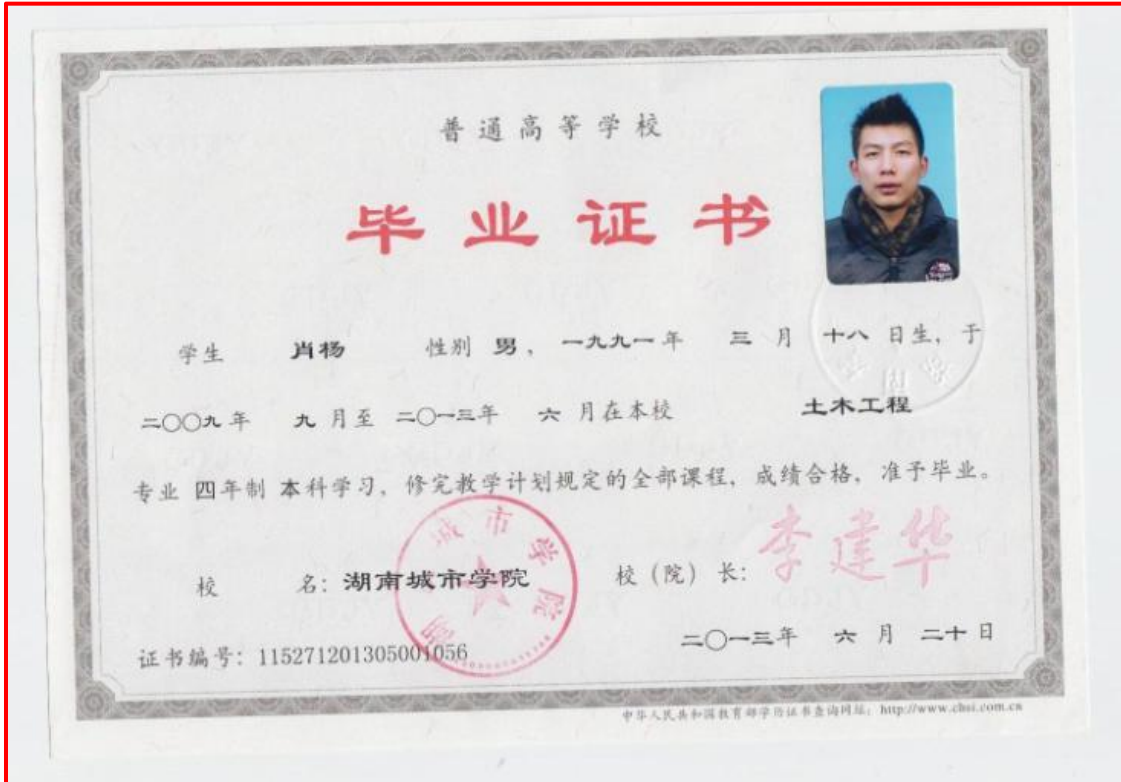 普通高等学校
毕业证书
学生 肖杨 性别 男，一九九一年 三 月 十八 日生，于
二〇〇九年 九 月至 二〇一三年 六 月在本校 土木工程
专业 四年制 本科学习，修完教学计划规定的全部课程，成绩合格，准予毕业。
校 名：湖南城市学院 校（院）长：李建华
城市学院
二〇一三年 六 月 二十 日
证书编号：115271201305001056
中华人民共和国教育部学历证书查询网址：http://www.chsi.com.cn